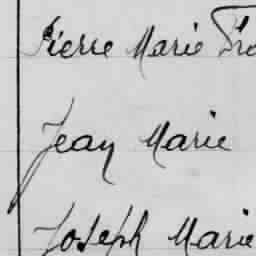 Pierre Marie
Jean Marie
Joseph Marie